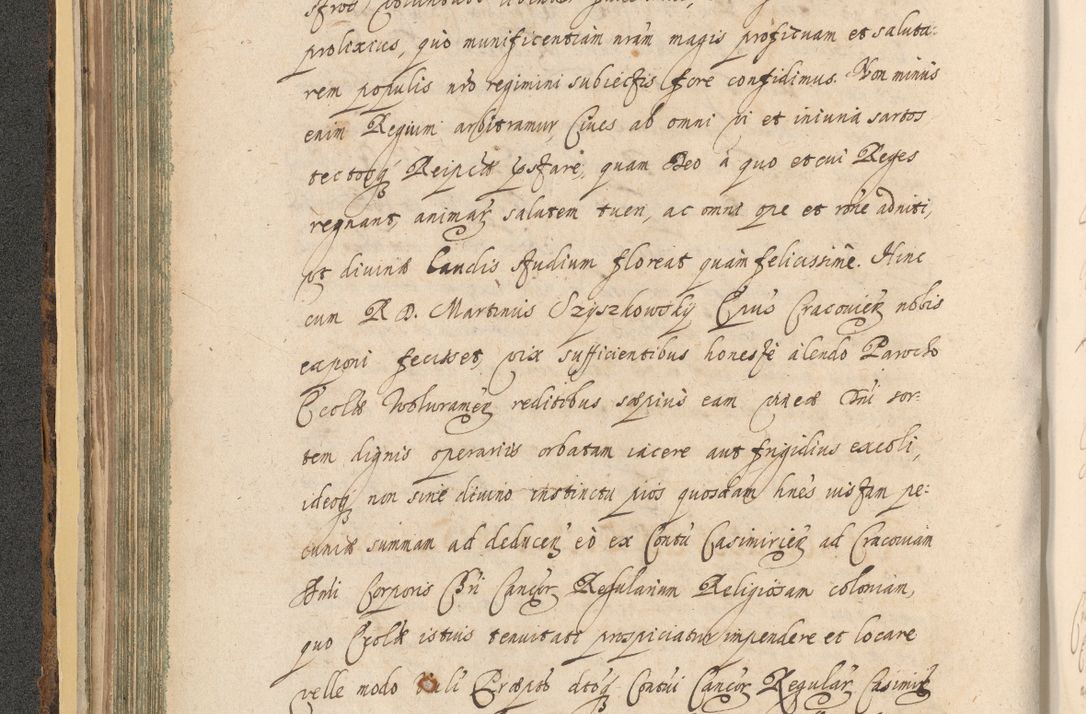 prolixius, quo munificentiam nram magis proficuam et saluta:
rem populis nro regimini subiectis fore confidimus. Non minus
enim Regium arbitramur, Ciues ab omni vi et iniuria sartos
tectosq Reipcæ pstare, quam Deo à quo et cui Reges
regnant, animar salutem tueri, ac omni ope et adniti,
vt diuinæ Laudis studium floreat quàm felicissimè. Hinc
cum R. D. Martinus Szyszkowsky Epus Cracouien nobis
exponi fecisset, vix sufficientibus honestè alendo Parocho
Ecclæ Wolwramen reditibus sæpius eam vineæ Dni sor:
tem dignis operariis orbatam iacere aut frigidius excoli,
ideoq non sine diuino instinctu pios quosdam hnes iustam pe:
cuniæ summam ad deducen eò ex Contu Casimirien ad Cracouiam
Smi Corporis Chri Cancor Regularium Religiosam coloniam,
quo Ecclæ istius prospiciatur impendere et locare
velle modo Præpto dtoq Contui Cancor Regular Casimir